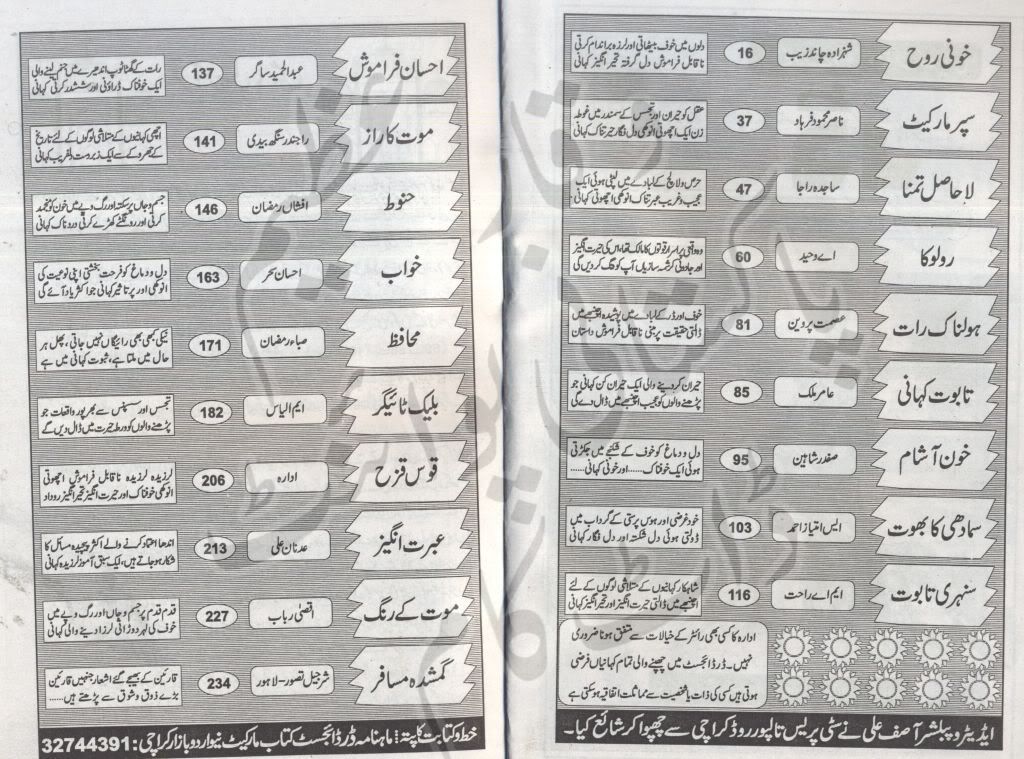 خونی روح
شہزادہ چاند زیب
16
دلوں میں خوف بیٹھاتی اور لرزہ براندام کرتی
ناقابل فراموش دل گرفتہ تحیر انگیز کہانی
سپر مارکیٹ
ناصر محمود فرہاد
37
عقل کو حیران اور تجسس کے سمندر میں غوطہ
زن ایک اچھوتی انوکھی دل فگار حیرتناک کہانی
لاحاصل تمنا
ساجدہ راجا
47
حرص و لالچ کے لبادے میں لپٹی ہوئی ایک
عجیب و غریب عبرتناک انوکھی اچھوتی کہانی
رولوکا
اے وحید
60
وہ واقعی پراسرار قوتوں کا مالک تھا، اس کی حیرت انگیز
اور جادوئی کرشمہ سازیاں آپ کو دنگ کردیں گی
ہولناک رات
عصمت پروین
81
خوف اور ڈر کے لبادے میں پوشیدہ اچنبھے میں
ڈالتی حقیقت پر مبنی ناقابل فراموش داستان
تابوت کہانی
عامر ملک
85
حیران کردینے والی ایک حیران کن کہانی جو
پڑھنے والوں کو عجیب اچنبھے میں ڈال دے گی
خون آشام
صفدر شاہین
95
دل و دماغ کو خوف کے شکنجے میں جکڑتی
ہوئی ایک خوفناک ...... اور خونی کہانی ......
سمادھی کا بھوت
ایس امتیاز احمد
103
خودغرضی اور ہوس پرستی کے گرداب میں
ڈولتی ہوئی دل شکستہ اور دل فگار کہانی
سنہری تابوت
ایم اے راحت
116
شاہکار کہانیوں کے متلاشی لوگوں کے لئے
اچنبھے میں ڈالتی حیرت انگیز اور تحیر انگیز کہانی
ادارہ کا کسی بھی رائٹر کے خیالات سے متفق ہونا ضروری
نہیں۔ ڈر ڈائجسٹ میں چھپنے والی تمام کہانیاں فرضی
ہوتی ہیں کسی کی ذات یا شخصیت سے مماثلت اتفاقیہ ہوسکتی ہے
ایڈیٹر و پبلشر آصف علی نے سٹی پریس تالپور روڈ کراچی سے چھپوا کر شائع کیا۔
احسان فراموش
عبدالحمید ساگر
137
رات کے گھٹا ٹوپ اندھیرے میں جنم لینے والی
ایک خوفناک ڈراؤنی اور ششدر کرتی کہانی
موت کا راز
راجندر سنگھ بیدی
141
اچھی کہانیوں کے متلاشی لوگوں کے لئے تاریخ
کے جھروکے سے ایک زبردست دلفریب کہانی
حنوط
افشاں رمضان
146
جسم و جاں پر سکتہ اور رگ و پے میں خون کو منجمد
کرتی اور رونگٹے کھڑے کرتی دردناک کہانی
خواب
احسان سحر
163
دل و دماغ کو فرحت بخشتی اپنی نوعیت کی
انوکھی اور پرتاثیر کہانی جو اکثر یاد آئے گی
محافظ
صباء رمضان
171
نیکی کبھی بھی رائیگاں نہیں جاتی، پھل ہر
حال میں ملتا ہے، ثبوت کہانی میں ہے
بلیک ٹائیگر
ایم الیاس
182
تجسس اور سسپنس سے بھرپور واقعات جو
پڑھنے والوں کو ورطہ حیرت میں ڈال دیں گے
قوس قزح
ادارہ
206
لرزیدہ لرزیدہ ناقابل فراموش اچھوتی
انوکھی خوفناک اور حیرت انگیز تحیر انگیز روداد
عبرت انگیز
عدنان علی
213
اندھا اعتماد کرنے والے اکثر پیچیدہ مسائل کا
شکار ہوجاتے ہیں، ایک سبق آموز لرزیدہ کہانی
موت کے رنگ
اقصیٰ رباب
227
قدم قدم پر جسم و جاں اور رگ و پے میں
خوف کی لہر دوڑاتی لرزا دینے والی کہانی
گمشدہ مسافر
شرجیل تصور-لاہور
234
قارئین کے بھیجے گئے اشعار جنہیں قارئین
بڑے ذوق و شوق سے پڑھتے ہیں......
خط و کتابت کا پتہ: ماہنامہ ڈر ڈائجسٹ کتاب مارکیٹ نیو اردو بازار کراچی: 32744391
پاکستانی پوائنٹ
ڈاٹ کام